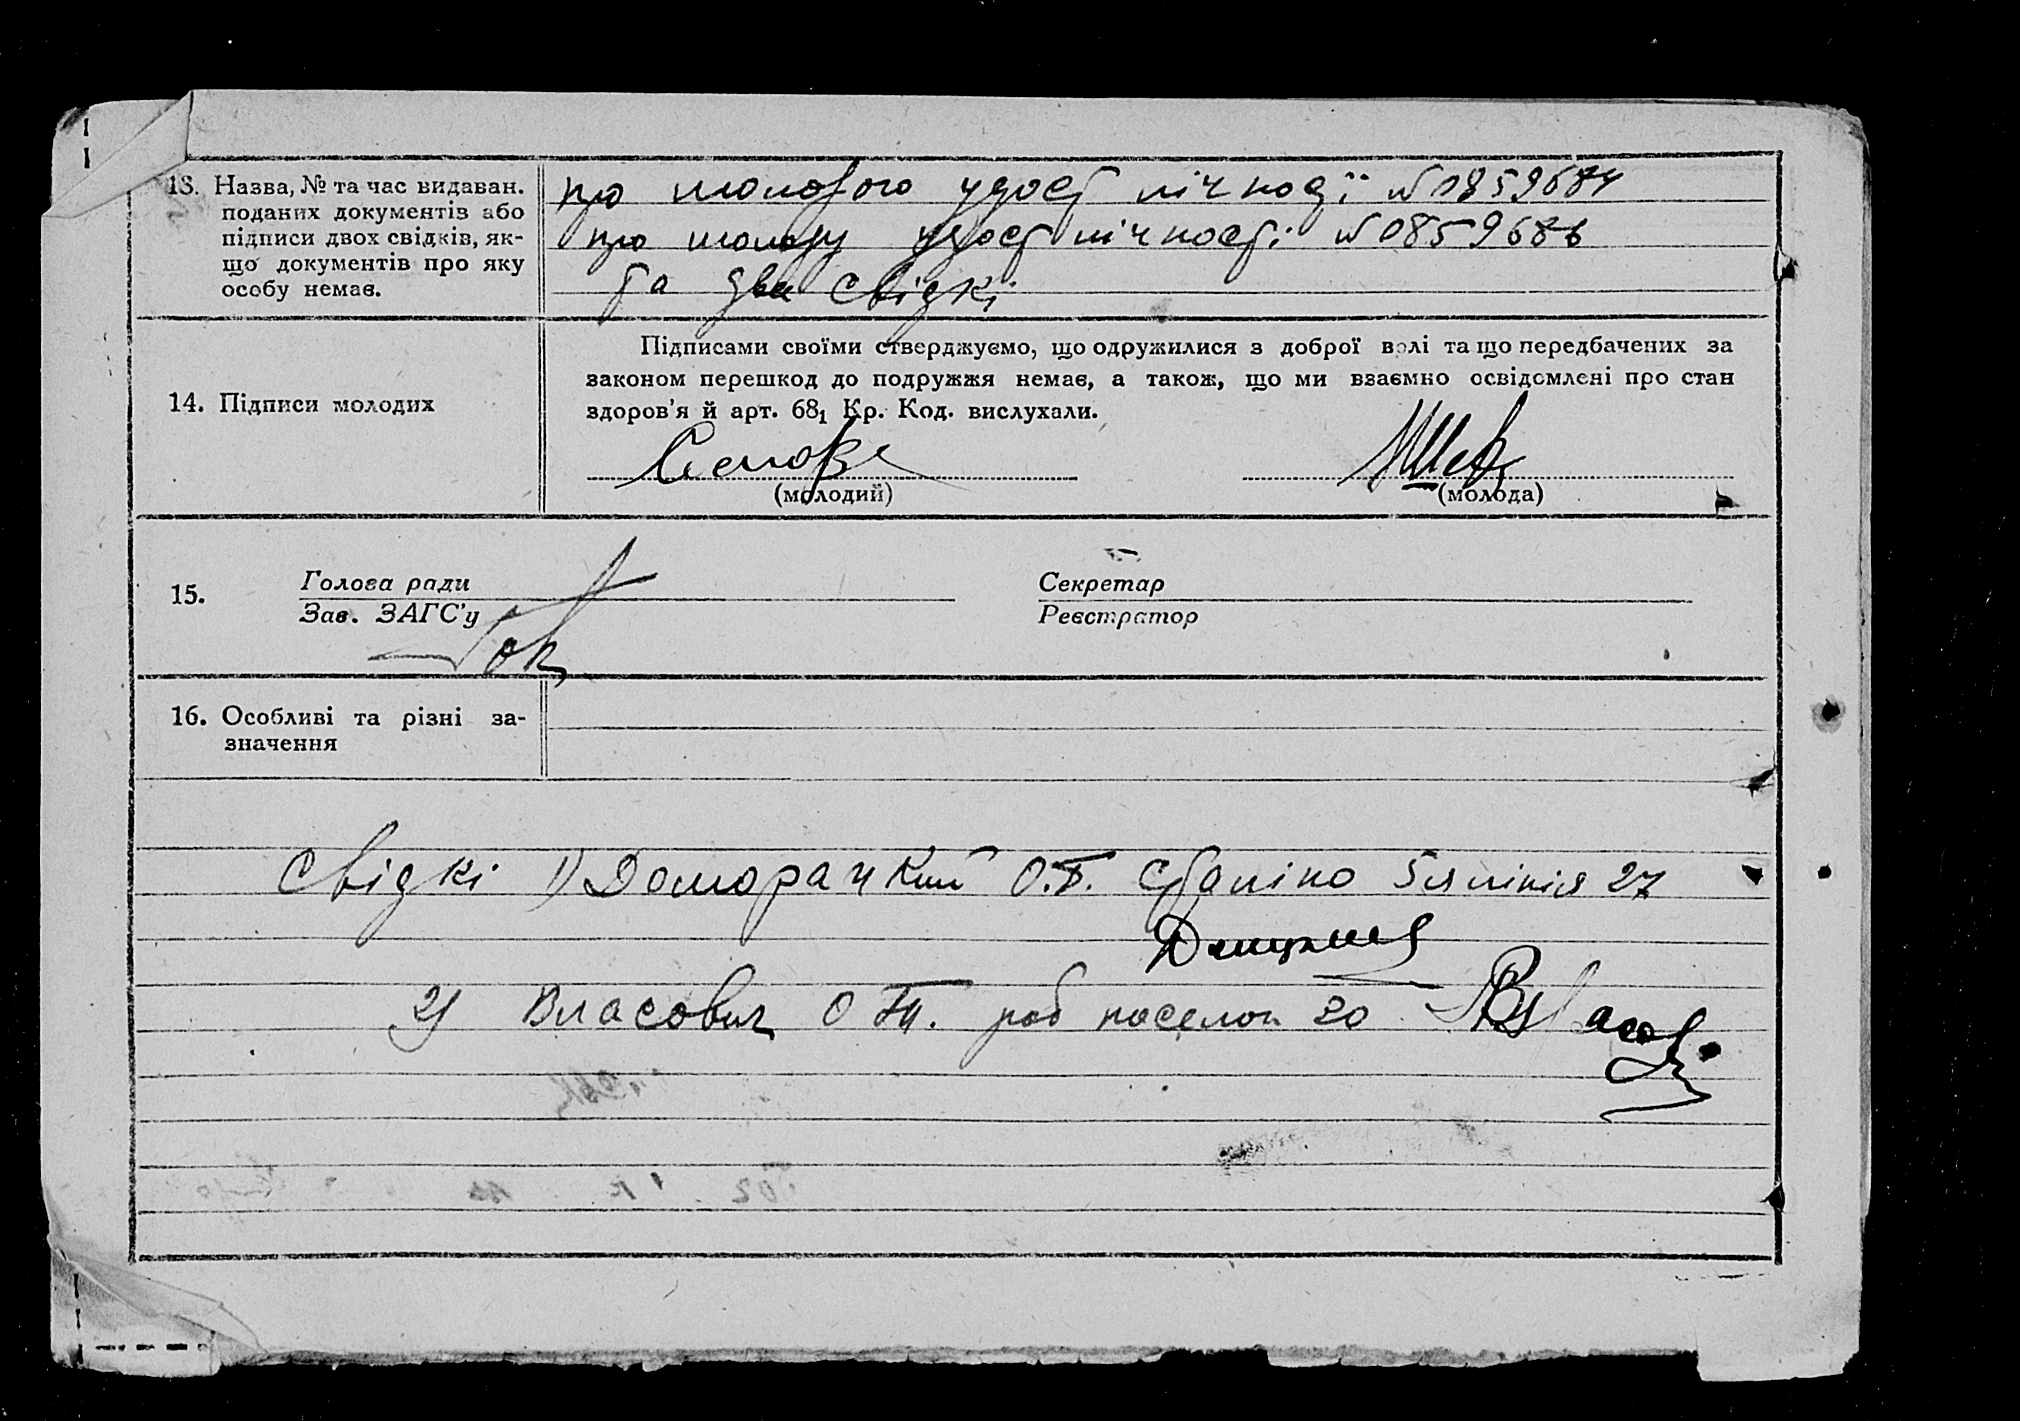 13. Назва, № та час видаван.
поданих документів або
підписи двох свідків, як-
що документів про яку
особу немає.
про молодого удост лічності № 0859684
про молоду удост лічності № 0859686
та два свідкі
14. Підписи молодих
Підписами своїми стверджуємо, що одружилися з доброї волі та що передбачених за
законом перешкод до подружжя немає, а також, що ми взаємно освідомлені про стан
здоров'я й арт. 68₁ Кр. Код. вислухали.
(молодий) (молода)
15. Голова ради Секретар
Зав. ЗАГС'у Реєстратор
16. Особливі та різні за-
значення
свідкі 1) Доморачкий О.Т. Сталіно 5я лінія 27
2) Власович О роб поселок 20